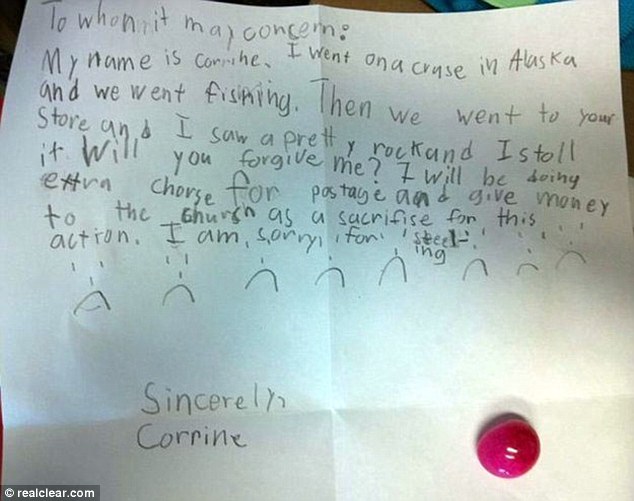 To whon it may concern:
My name is Corrine. I went on a cruse in Alaska
and we went fishing. Then we went to your
Store and I saw a pretty rock and I stoll
it Will you forgive me? I will be doing
extra chorse for postage and give money
to the church as a sacrifise for this
action. I am, sorry, for steel-
ing
Sincerely,
Corrine
© realclear.com